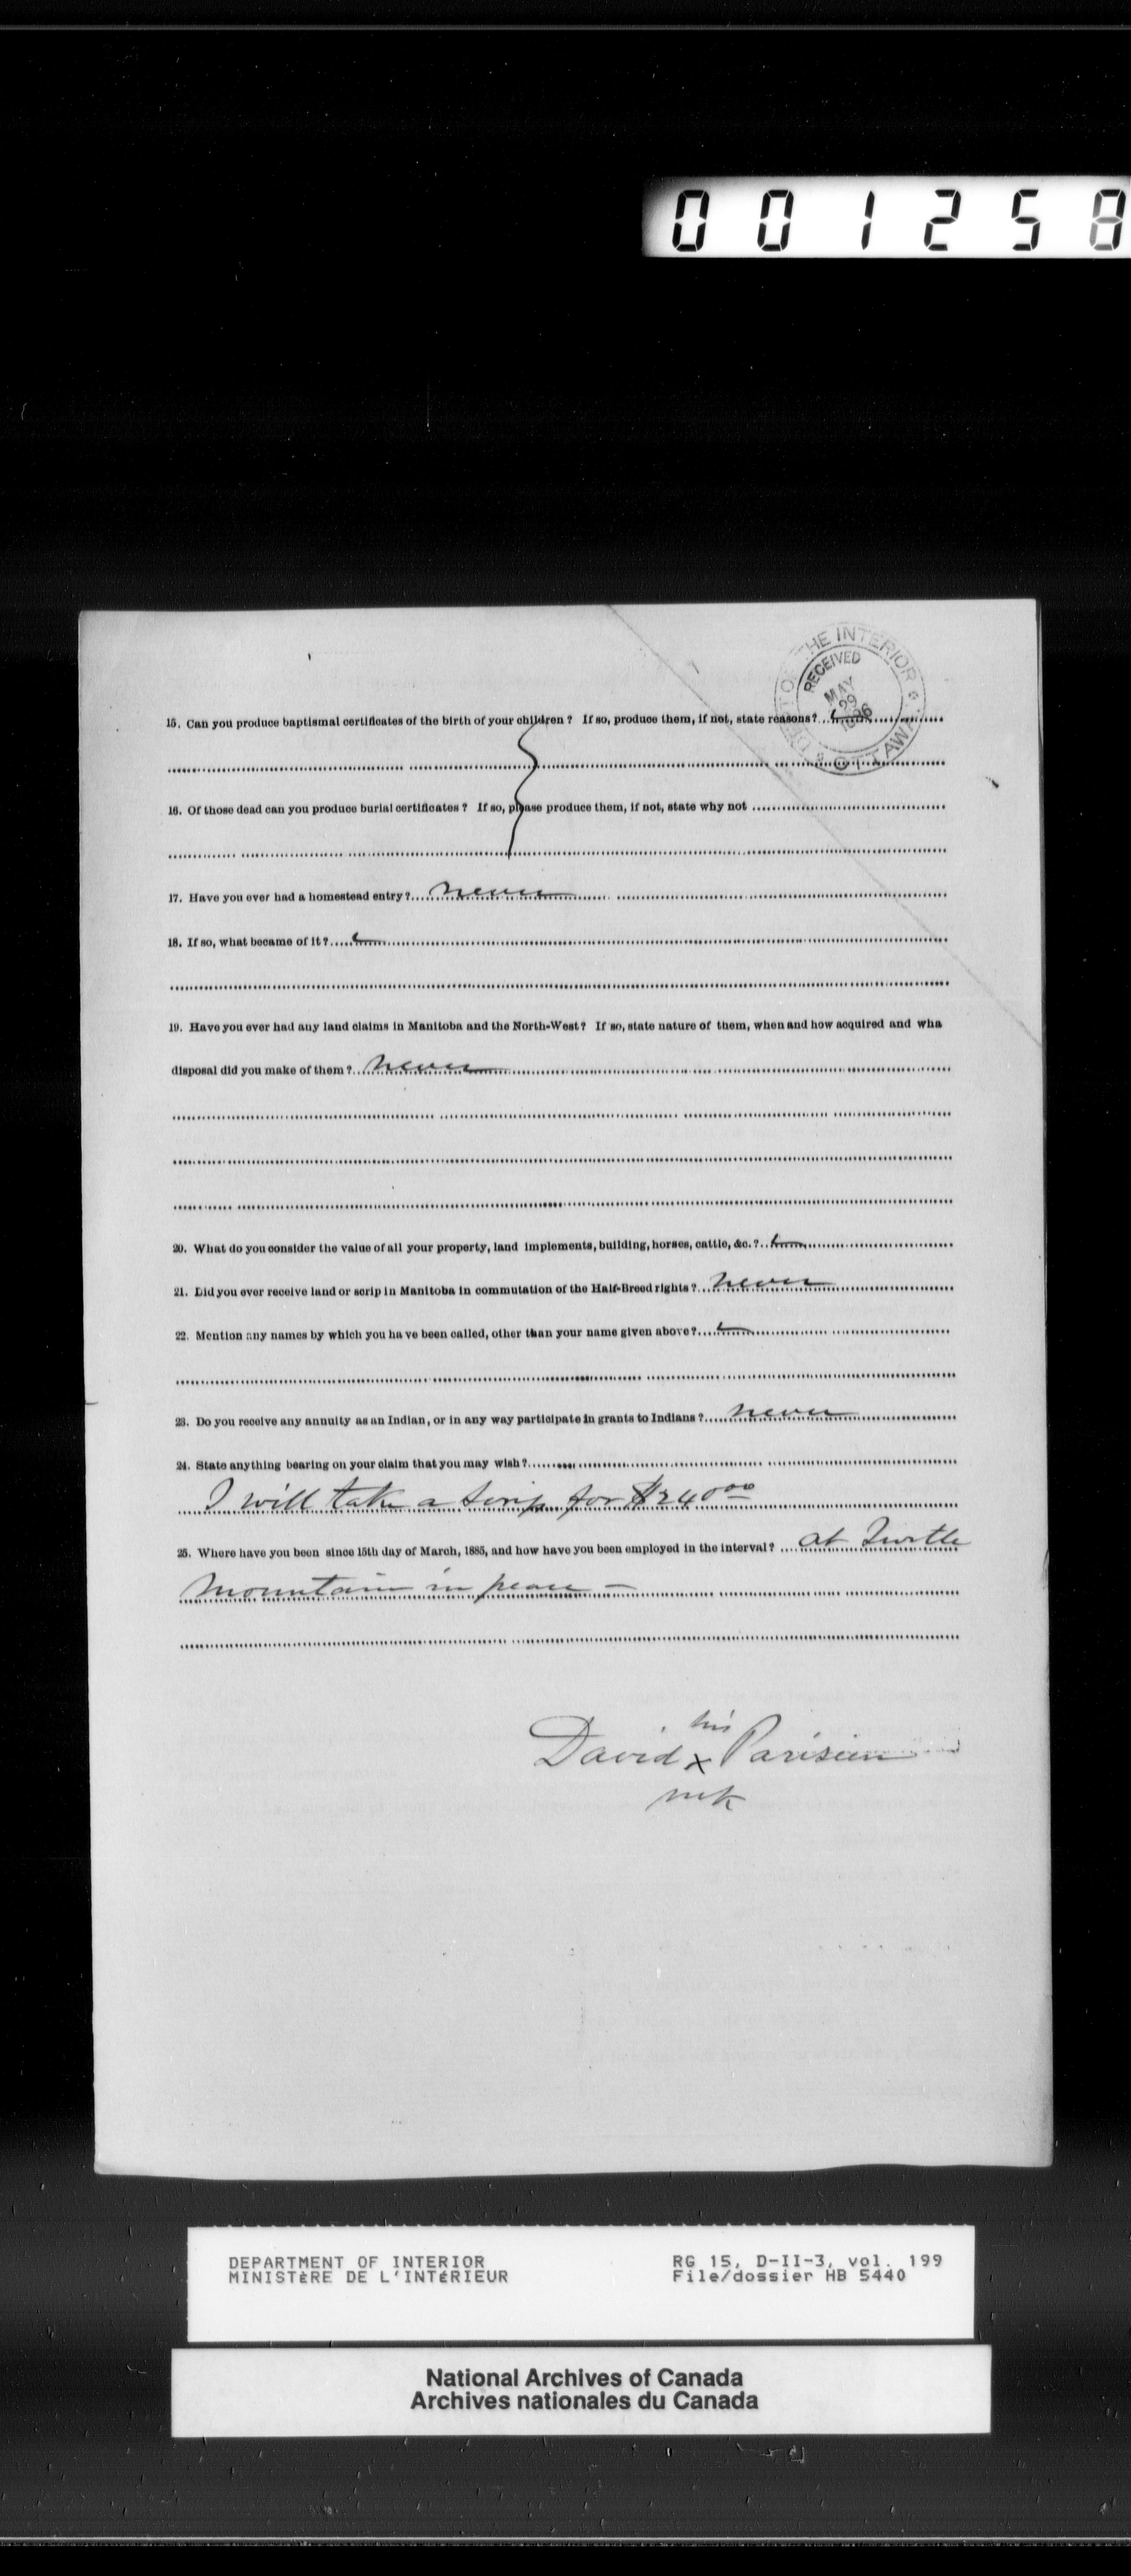 001258
DEPT OF THE INTERIOR
RECEIVED
MAY
29
1886
OTTAWA
15. Can you produce baptismal certificates of the birth of your children? If so, produce them, if not, state reasons?
16. Of those dead can you produce burial certificates? If so, please produce them, if not, state why not
17. Have you ever had a homestead entry? never
18. If so, what became of it?
19. Have you ever had any land claims in Manitoba and the North-West? If so, state nature of them, when and how acquired and wha
disposal did you make of them? never
20. What do you consider the value of all your property, land implements, building, horses, cattle, &c.?
21. Did you ever receive land or scrip in Manitoba in commutation of the Half-Breed rights? never
22. Mention any names by which you have been called, other than your name given above?
23. Do you receive any annuity as an Indian, or in any way participate in grants to Indians? never
24. State anything bearing on your claim that you may wish?
I will take a scrip for $240 00
25. Where have you been since 15th day of March, 1885, and how have you been employed in the interval? at Turtle
Mountain in peace –
his
David x Parisien
mk
DEPARTMENT OF INTERIOR RG 15, D-II-3, vol. 199
MINISTÈRE DE L'INTÉRIEUR File/dossier HB 5440
National Archives of Canada
Archives nationales du Canada